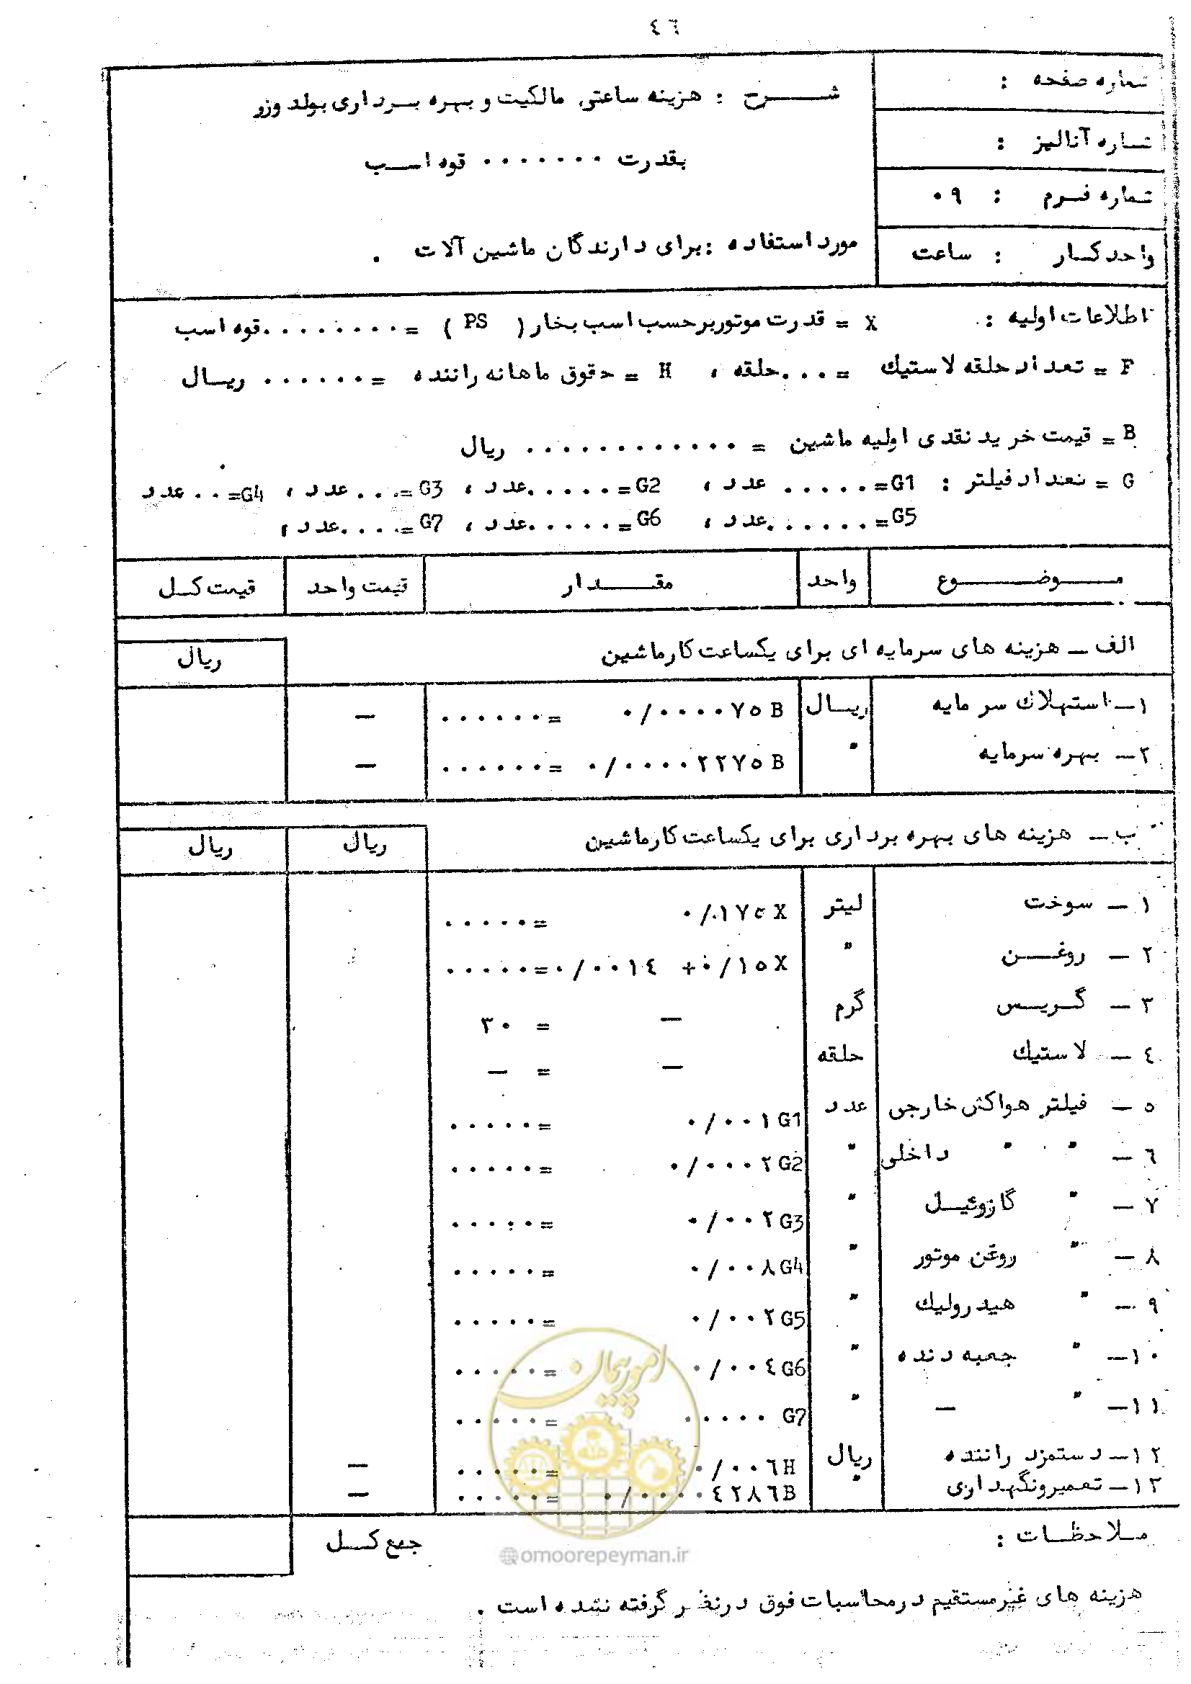 ٤٦
شماره صفحه :
شماره آنالیز :
شماره فرم : ٠٩
واحد کار : ساعت
شرح : هزینه ساعتی مالکیت و بهره برداری بولد وزر
بقدرت ....... قوه اسب
مورد استفاده : برای دارندگان ماشین آلات .
اطلاعات اولیه : X = قدرت موتور برحسب اسب بخار ( PS ) = ........ قوه اسب
F = تعداد حلقه لاستیك = .... حلقه ، H = حقوق ماهانه راننده = ...... ریال
B = قیمت خرید نقدی اولیه ماشین = ............ ریال
G = تعداد فیلتر : G1= ..... عدد ، G2= ..... عدد ، G3= ... عدد ، G4= .. عدد
G5= ...... عدد ، G6= ..... عدد ، G7= .... عدد ،
موضوع واحد مقدار قیمت واحد قیمت کل
الف ــ هزینه های سرمایه ای برای یکساعت کار ماشین ریال
١ــ استهلاك سرمایه ریال ٠/٠٠٠٠٧٥ B = ...... ــ
٢ــ بهره سرمایه " ٠/٠٠٠٠٢٢٧٥ B = ...... ــ
ب ــ هزینه های بهره برداری برای یکساعت کار ماشین ریال ریال
١ ــ سوخت لیتر ٠/١٧٥ X = .....
٢ ــ روغن " ٠/٠٠١٤ + ٠/١٥ X = .....
٣ ــ گریس گرم ــ = ٣٠
٤ ــ لاستیك حلقه ــ = ــ
٥ ــ فیلتر هواکش خارجی عدد ٠/٠٠١ G1 = .....
٦ ــ " " داخلی " ٠/٠٠٠٢ G2 = .....
٧ ــ " گازوئیل " ٠/٠٠٢ G3 = .....
٨ ــ " روغن موتور " ٠/٠٠٨ G4 = .....
٩ ــ " هیدرولیك " ٠/٠٠٢ G5 = .....
١٠ــ " جعبه دنده " ٠/٠٠٤ G6 = .....
١١ــ " ــ " ..... G7 = .....
١٢ــ دستمزد راننده ریال ٠/٠٠٦ H = ..... ــ
١٣ــ تعمیرونگهداری " ٠/٠٠٠٠٤٢٨٦ B = ..... ــ
جمع کل
ملاحظات :
هزینه های غیرمستقیم درمحاسبات فوق درنظر گرفته نشده است .
امور پیمان
@omoorepeyman.ir